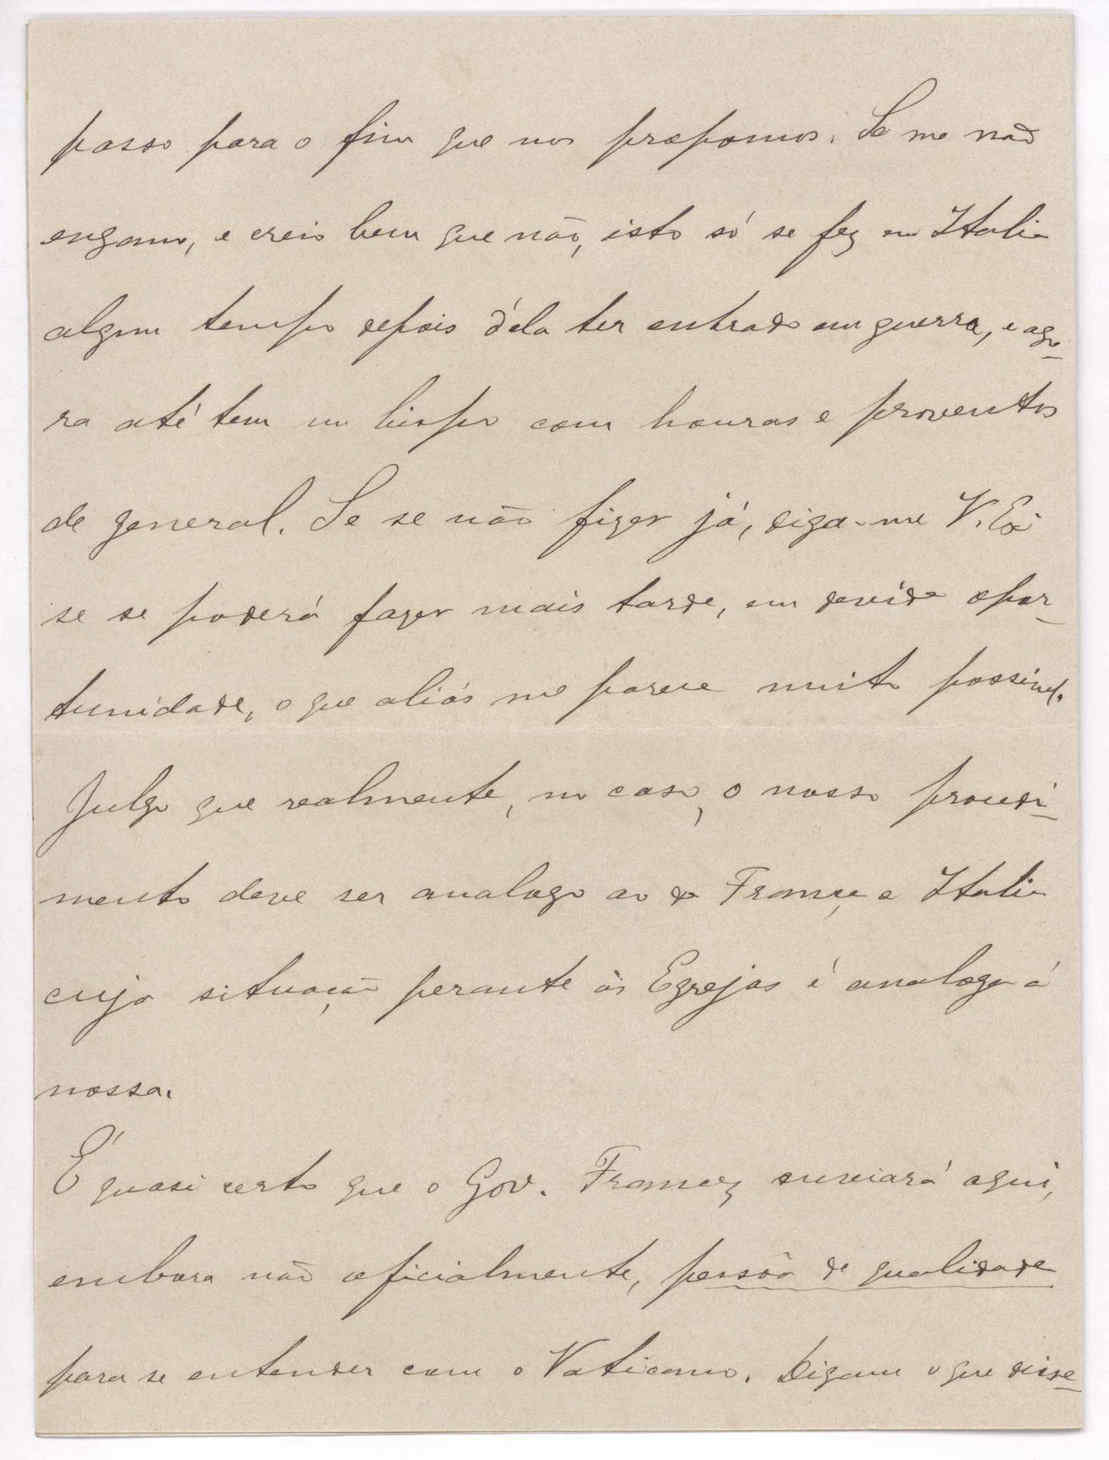 passo para o fim que nos propomos. Se me não
engano, e creio bem que não, isto só se fez em Italia
algum tempo depois d'ela ter entrado em guerra, e ago-
ra até tem um bispo com honras e proventos
de general. Se se não fizer já, diga-me V. Exª
se se poderá fazer mais tarde, em devida opor-
tunidade, o que aliás me parece muito possivel.
Julgo que realmente, no caso, o nosso procedi-
mento deve ser analogo ao da França e Italia
cuja situação perante às Egrejas é analoga á
nossa.
É quasi certo que o Gov. Francez enviará aqui,
embora não oficialmente, pessôa de qualidade
para se entender com o Vaticano. Digam o que disse-